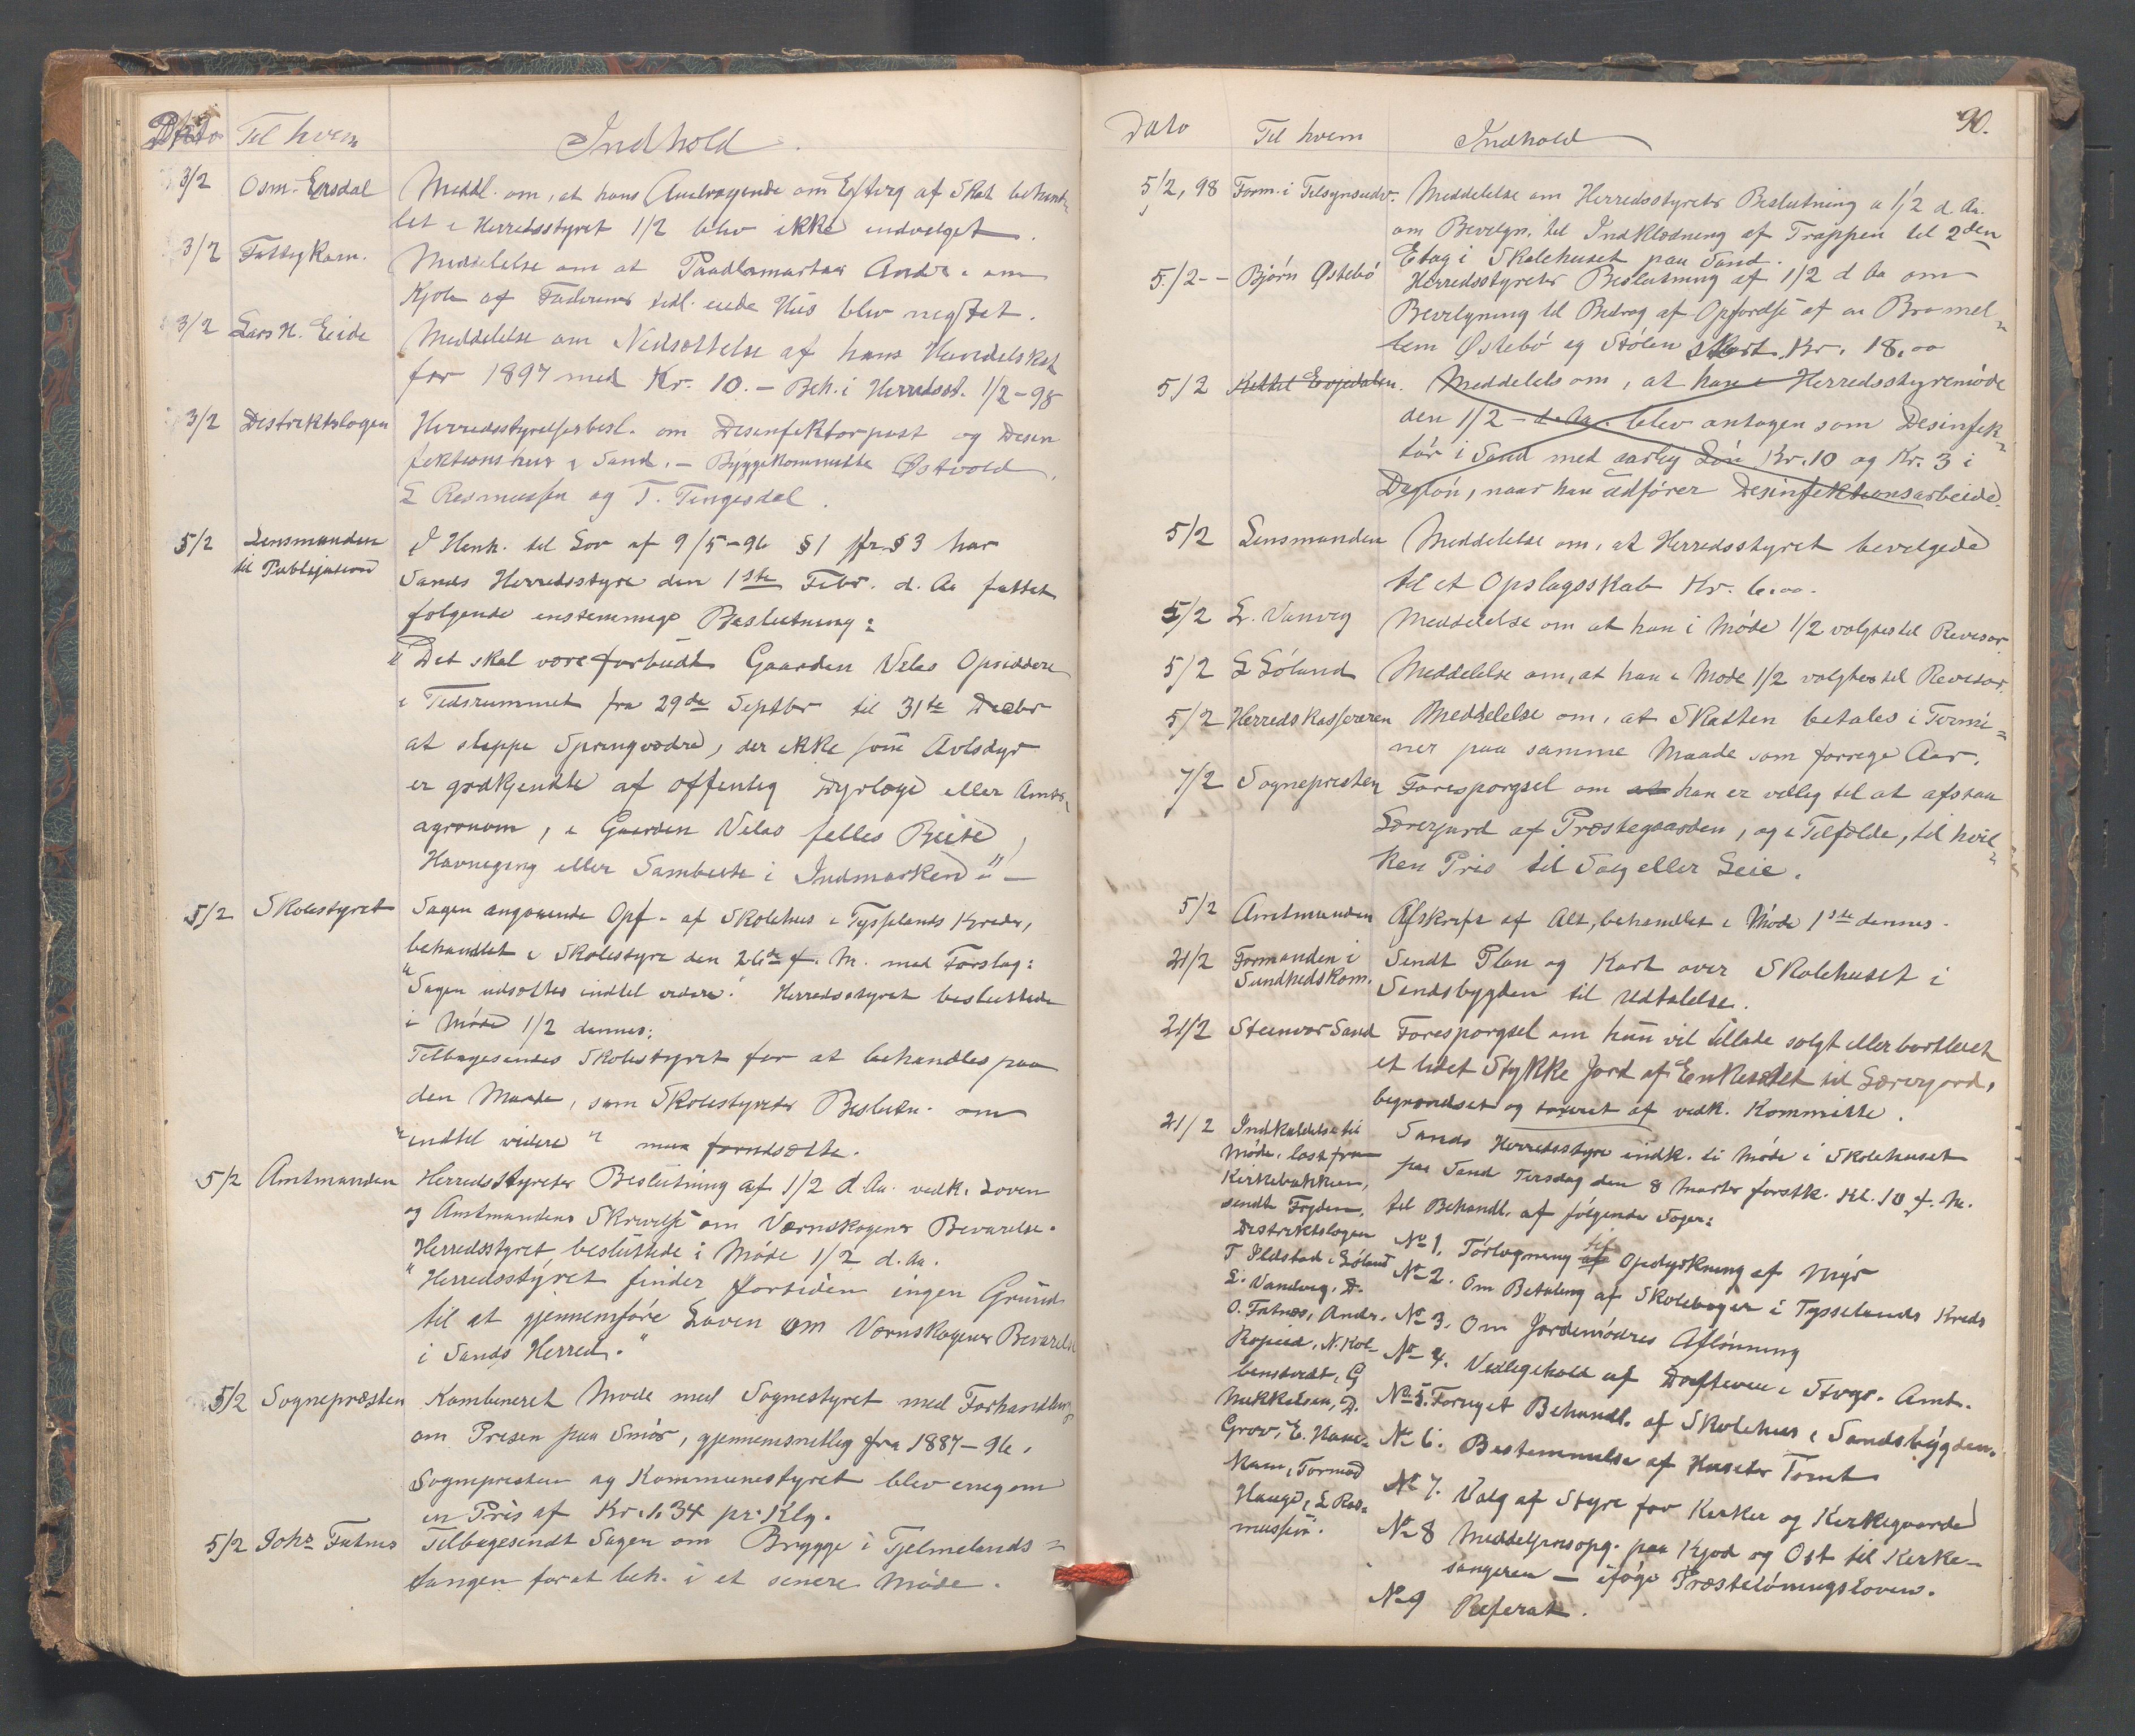 Dato Til hvem Indhold.
3/2 Osm. Ersdal Meddl. om, at hans Andragende om Efterg af Skat behand-
let i Herredsstyret 1/2 blev ikke indvilget.
3/2 Fattigkom. Meddelelse om at Andr. om
Kjøb af Hus blev negtet.
3/2 Lars H. Eide Meddelelse om Nedsættelse af hans Skat
for 1897 med Kr. 10. – Beh. i Herredsst. 1/2 – 98
3/2 Destriktslægen Herredsstyrelsesbesl. om Desenfektorpost og Desen
fektionshus i Sand. – Byggekommitte Østvold,
L Rasmussen og T. Tengesdal.
5/2 Lensmanden I Henh. til Lov af 9/5-96 §1 jfr. §3 har
til Publikation Sands Herredsstyre den 1ste Febr. d. Aa fattet
følgende enstemmige Beslutning:
"Det skal være forbudt Gaarden Velas Opsiddere
i Tidsrummet fra 29de Septbr til 31te Decbr
at sleppe Springvædre, der ikke som Avlsdyr
er godkjendte af offentlig Dyrlæge eller Amts-
agronom, i Gaarden Velas felles Beite,
Havnegang eller Sambeite i Indmarken" –
5/2 Skolestyret Sagen angaaende Opf. af Skolehus i Tysselands Kreds,
behandlet i Skolestyre den 26de f. M. med Forslag:
"Sagen udsættes indtil videre." Herredsstyret besluttede
i Møde 1/2 dennes:
Tilbagesendes Skolestyret for at behandles paa
den Maade, som Skolestyrets Beslutn. om
"indtil videre" maa forudsætte.
5/2 Amtmanden Herredsstyrets Beslutning af 1/2 d Aa. vedk. Loven
og Amtmandens Skrivelse om Værnskogens Bevarelse.
Herredsstyret besluttede i Møde 1/2 d. Aa.
"Herredsstyret finder fortiden ingen Grund
til at gjennemføre Loven om Værnskogens Bevarelse
i Sands Herred."
5/2 Sognepræsten Kombineret Møde med Sognestyret med Forhandling
om Prisen paa Smør, gjennemsnitlig fra 1887-96.
Sognepresten og Kommunestyret blev enig om
en Pris af Kr. 1,34 pr. Klg.
5/2 Johs Fatnes Tilbagesendt Sagen om Brygge i Tjelmelands-
tangen for at beh. i et senere Møde.
90.
Dato Til hvem Indhold
5/2, 98 Form. i Tilsynsudv. Meddelelse om Herredsstyrets Beslutning a 1/2 d Aa.
om Bevilgn. til Indklædning af Trappen til 2den
Etag i Skolehuset paa Sand.
5./2 – – Bjørn Østebø Herredsstyrets Beslutning af 1/2 d Aa om
Bevilgning til Bidrag af Opførelse af en Bro mel-
lem Østebø og Stølen Kr. 18,00
5/2 Kettel Evjedalen. Meddelels om, at han i Herredsstyremøde
den 1/2 – d. Aa. blev antagen som Desinfek-
tør i Sand med aarlig Løn Kr. 10 og Kr. 3 i
Dagløn, naar han udfører Desinfektionsarbeide.
5/2 Lensmanden Meddelelse om, at Herredsstyret bevilgede
til et Opslagsskab Kr. 6.00.
5/2 L. Vanvig Meddelelse om at han i Møde 1/2 valgtes til Revisor
5/2 L Løland Meddelelse om, at han i Møde 1/2 valgtes til Revisor.
5/2 Herredskassereren Meddelelse om, at Skatten betales i Termi-
ner paa samme Maade som forrige Aar.
7/2 Sognepresten Forespørgsel om at han er villig til at afstaa
Lærerjord af Præstegaarden, og i Tilfælde, til hvil-
ken Pris til Salg eller Leie.
5/2 Amtmanden Afskrift af Alt, behandlet i Møde 1ste dennes.
21/2 Formanden i Sendt Plan og Kart over Skolehuset i
Sundhedskom. Sandsbygden til Udtalelse.
21/2 Steinvor Sand Forespørgsel om hun vil tillade solgt eller bortleiet
et lidet Stykke Jord af Enkesædet til Lærerjord,
begrændset og taxeret af vedk. Kommitte.
21/2 Indkaldelse til Sands Herredsstyre indk. til Møde i Skolehuset
Møde, læst fra paa Sand Tirsdag den 8 Marts førstk. Kl. 10 f. M.
Kirkebakken, til Behandl. af følgende Sager:
sendt Fogden,
Destriktslægen No 1. Tørlægning af til Opdyrkning af Myr
T Ilstad i Løland No 2. Om Betaling af Skolebøger i Tysselands Kreds
L. Vandvig, D.
O. Fatnes, Andr. No 3. Om Jordemødres Aflønning
N. Kol- No 4. Vedligehold af i Stavgr. Amt.
benstvedt, G
Mikkelsen, D. No 5. Fornyet Behandl. af Skolehus i Sandsbygden.
Grov, E. Have- No 6. Bestemmelse af Husets Tomt
kam, Tormod No 7. Valg af Styre for Kirker og Kirkegaarde
Hauge, L Ras- No 8 Meddelsesopg. paa Kjød og Ost til Kirke-
mussen. sangeren – ifølge Præstelønningsloven.
No 9 Referat.